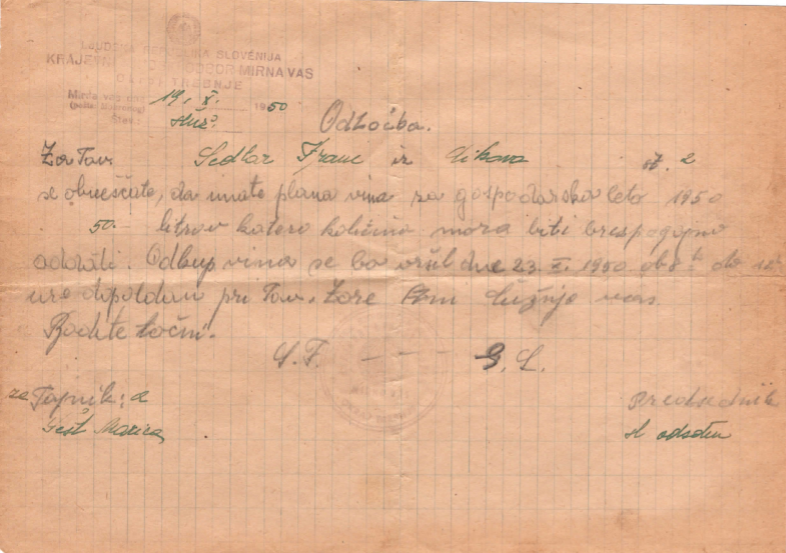 LJUDSKA REPUBLIKA SLOVENIJA
KRAJEVNI ODBOR MIRNA VAS
OKRAJ TREBNJE
Mirna vas, dne 19. X. 1950
Štev.
Odločba.
Za Tov. Sedlar Franc iz št. 2
se obvešćate, da imate plana vina za gospodarsko leto 1950
50.- litrov katero količino mora biti brespogojno
oddati. Odkup vina se bo vršil dne 23. X. 1950 ob 8h do 12
ure dopoldan pri Tov. Zore vas.
Bodite točni.
S. F. - - - S. L.
za Tajnik: a Predsednik
Marica odsoten